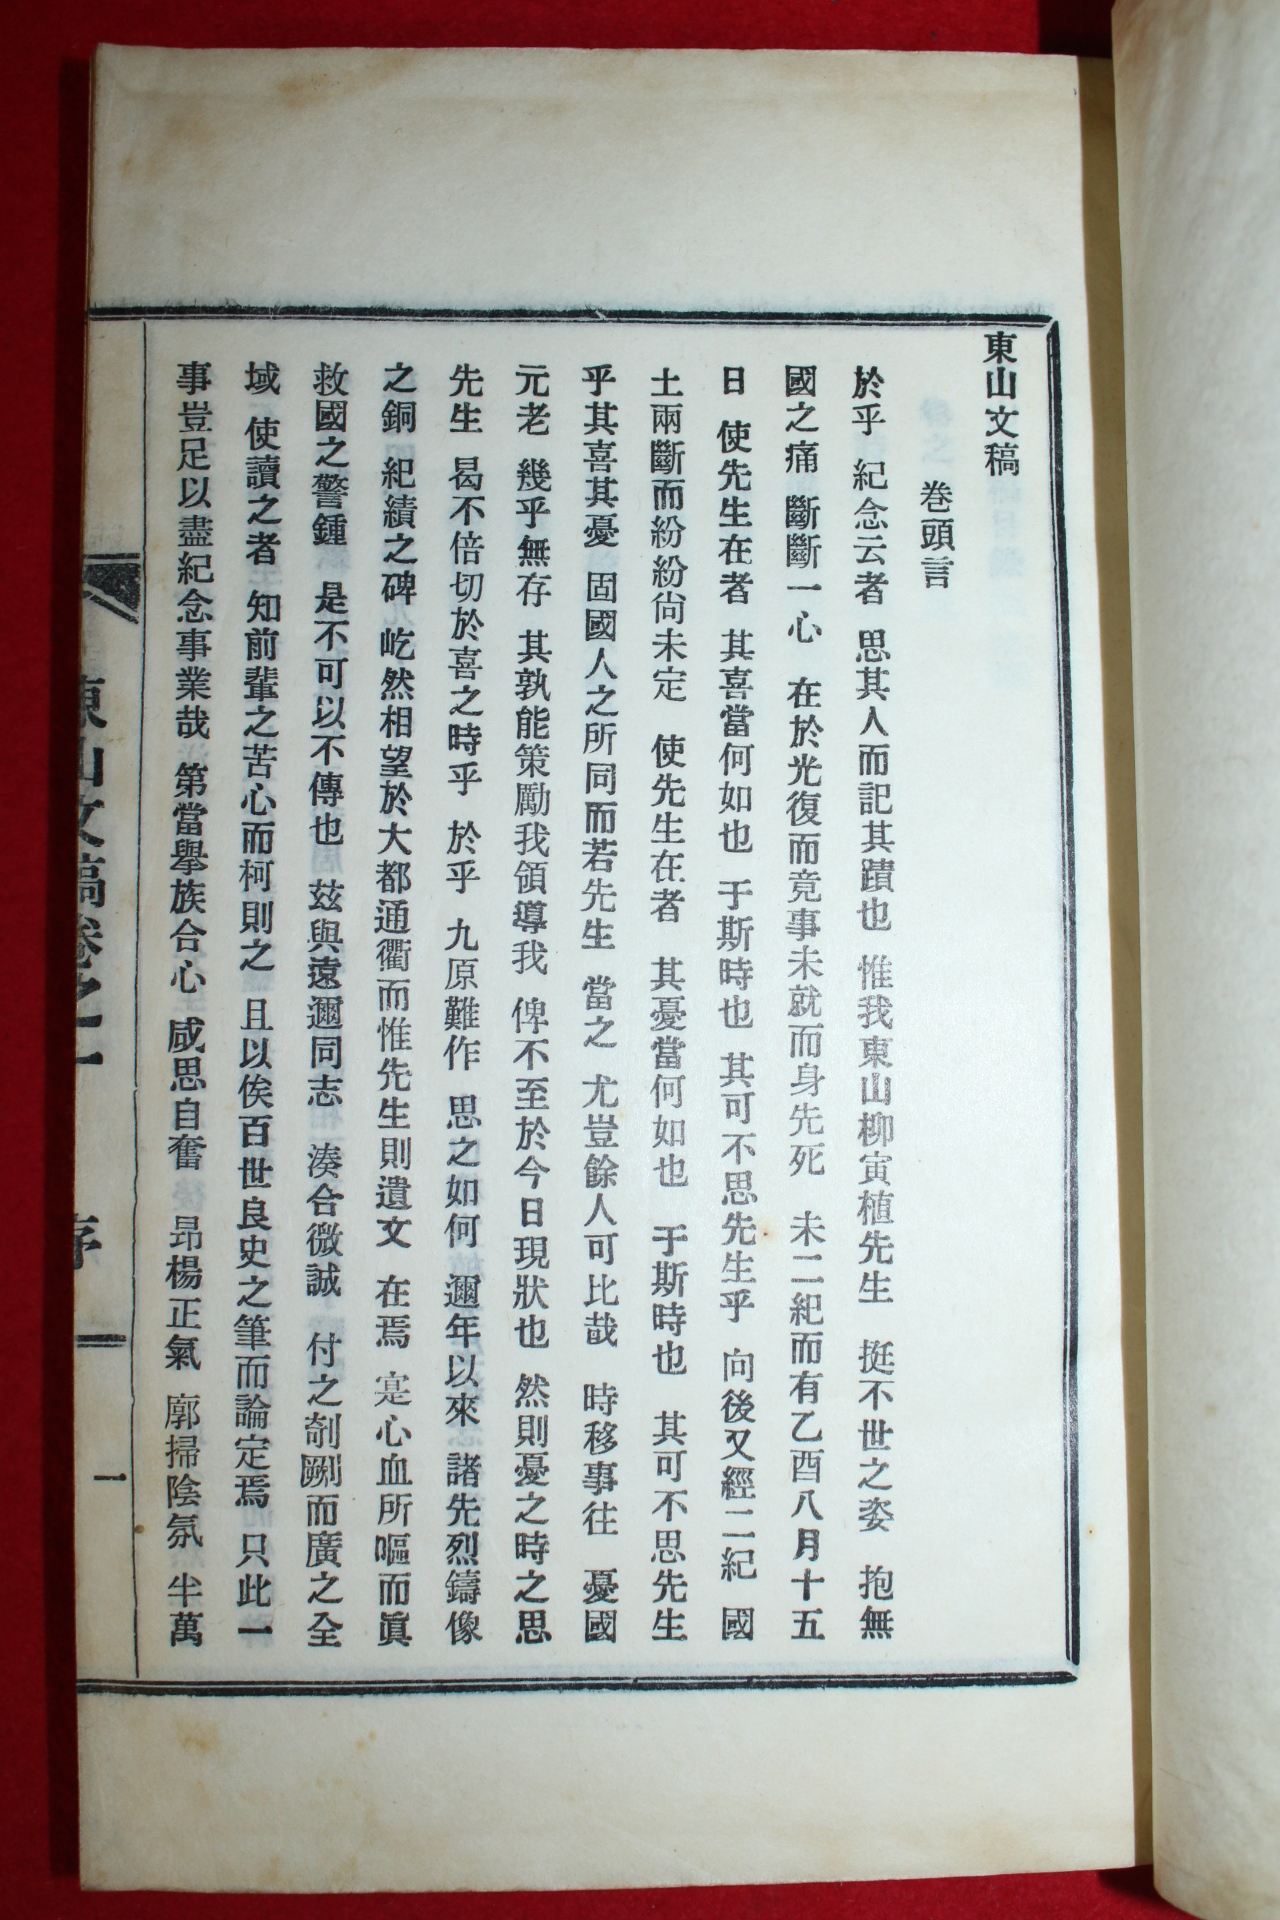 東山文稿
卷頭言
於乎 紀念云者 思其人而記其蹟也 惟我東山柳寅植先生 挺不世之姿 抱無
國之痛 斷斷一心 在於光復而竟事未就而身先死 未二紀而有乙酉八月十五
日 使先生在者 其喜當何如也 于斯時也 其可不思先生乎 向後又經二紀 國
土兩斷而紛紛尙未定 使先生在者 其憂當何如也 于斯時也 其可不思先生
乎其喜其憂 固國人之所同而若先生 當之 尤豈餘人可比哉 時移事往 憂國
元老 幾乎無存 其孰能策勵我領導我 俾不至於今日現狀也 然則憂之時之思
先生 曷不倍切於喜之時乎 於乎 九原難作 思之如何 邇年以來 諸先烈鑄像
之銅 紀績之碑 屹然相望於大都通衢而惟先生則遺文 在焉 寔心血所嘔而眞
救國之警鍾 是不可以不傳也 玆與遠邇同志 湊合微誠 付之剞劂而廣之全
域 使讀之者 知前輩之苦心而柯則之 且以俟百世良史之筆而論定焉 只此一
事豈足以盡紀念事業哉 第當擧族合心 咸思自奮 昻楊正氣 廓掃陰氛 半萬
東山文稿卷之一
序
一